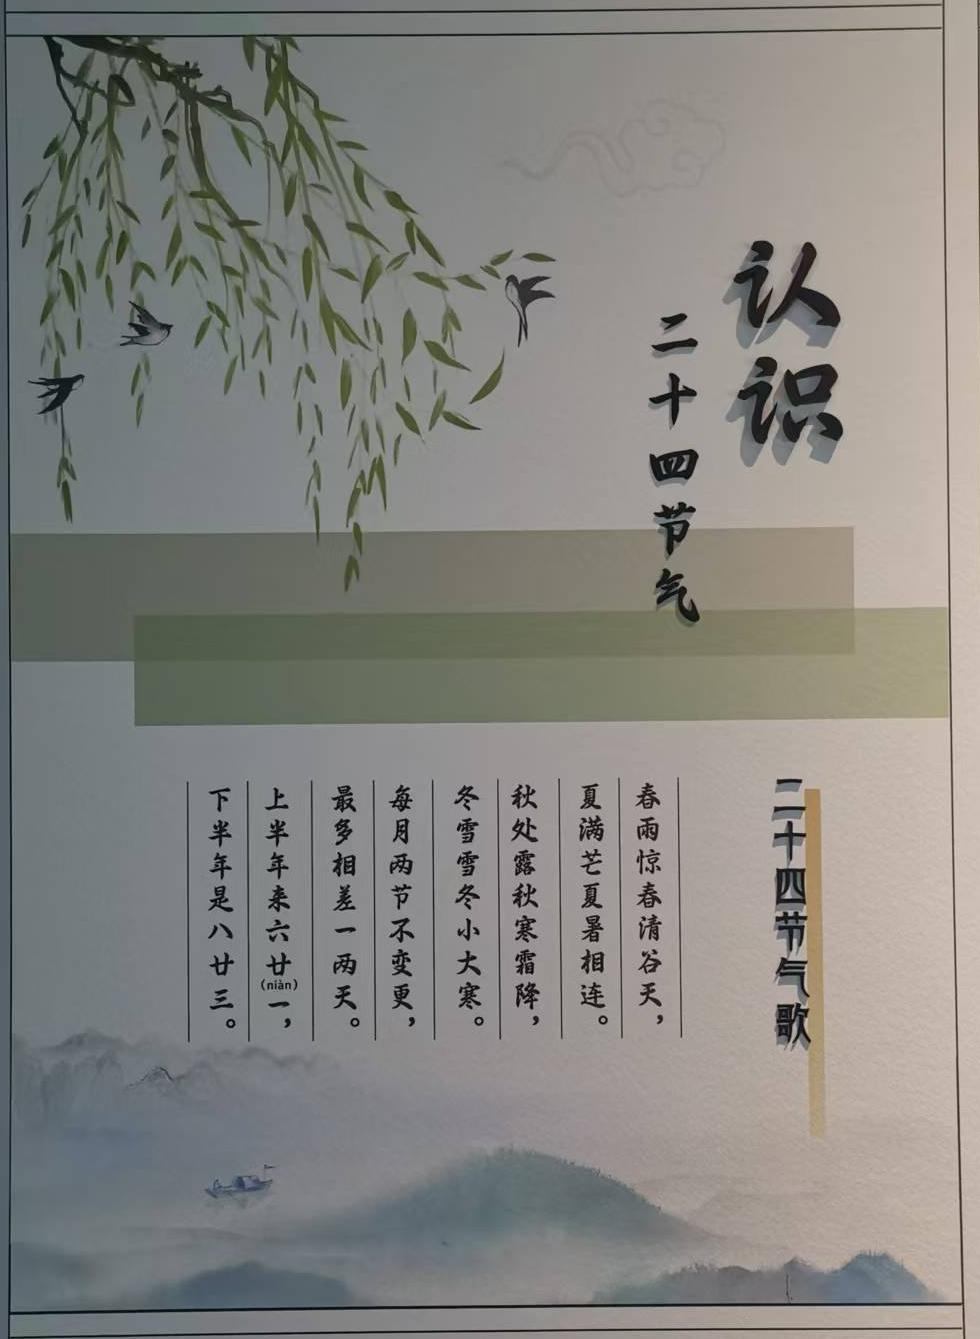 认识
二十四节气
二十四节气歌
春雨惊春清谷天，
夏满芒夏暑相连。
秋处露秋寒霜降，
冬雪雪冬小大寒。
每月两节不变更，
最多相差一两天。
上半年来六廿(niàn)一，
下半年是八廿三。